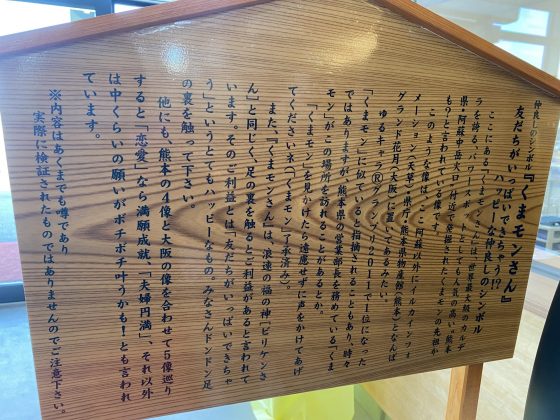 仲良しのシンボル『くまモンさん』
友だちがいっぱいできちゃう!?
ハッピーな仲良しのシンボル
ここにある「くまモンさん」は、世界最大級のカルデ
ラを誇る、パワースポットとしても人気の高い"熊本
県・阿蘇中岳火口"付近で発掘されたくまモンの先祖か
も?と言われている像です。
このような像は、ここ阿蘇以外に「アルカインフォ
メーション(天草)、県庁、熊本県物産館(熊本)となんば
グランド花月(大阪)に置いてあるみたい。
ゆるキャラⓇグランプリ2011で1位になった
「くまモン」に似ていると指摘されることもあり、時々
ではありますが、熊本県の営業部長を務めている「くま
モン」がこの場所を訪れることがあるとか。
「くまモン」を見かけたら遠慮せずに声をかけてあげ
てくださいネ(「くまモン」了承済み)。
また、『くまモンさん』は、浪速の福の神「ビリケンさ
ん」と同じく、足の裏を触るとご利益があると言われて
います。そのご利益とは「友だちがいっぱいできちゃ
う」というとてもハッピーなもの。みなさんドンドン足
の裏を触って下さい。
他にも、熊本の4像と大阪の像を合わせて5像巡り
すると「恋愛」なら満願成就、「夫婦円満」、それ以外
は中くらいの願いがボチボチ叶うかも!とも言われ
ています。
※内容はあくまでも噂であり
実際に検証されたものではありませんのでご注意下さい。